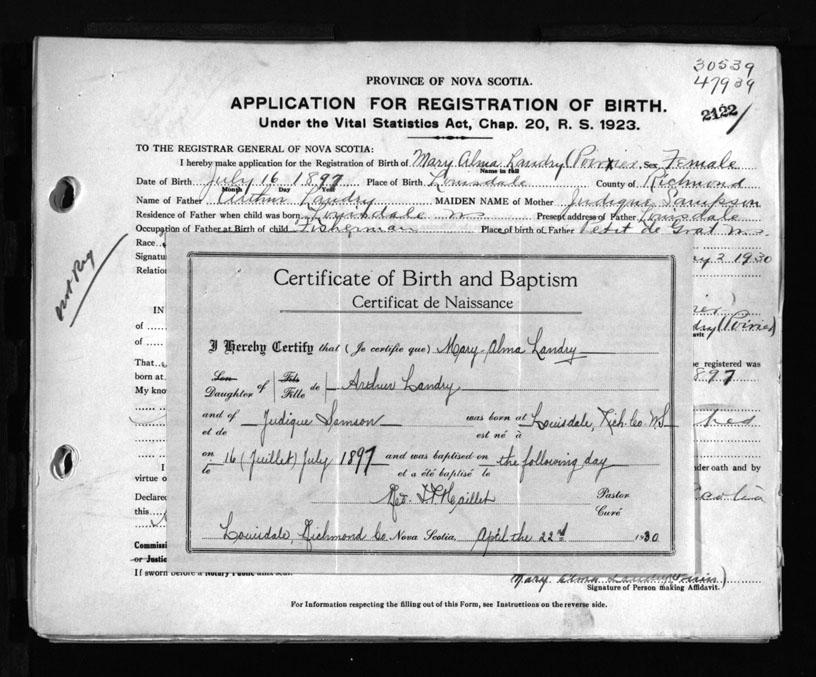 30539
47939
2122
PROVINCE OF NOVA SCOTIA.
APPLICATION FOR REGISTRATION OF BIRTH.
Under the Vital Statistics Act, Chap. 20, R. S. 1923.
TO THE REGISTRAR GENERAL OF NOVA SCOTIA:
I hereby make application for the Registration of Birth of Mary Alma Landry (Poirier) Sex Female
Name in full
Date of Birth July 16 1897 Place of Birth Louisdale County of Richmond
Month Day Year
Name of Father Arthur Landry MAIDEN NAME of Mother Judique Sampson
Residence of Father when child was born Louisdale N.S. Present address of Father Louisdale
Occupation of Father at Birth of child Fisherman Place of birth of Father Petit de Grat N.S.
Race
Signatu 2 1930
Relation
Not Reg
Certificate of Birth and Baptism
Certificat de Naissance
I Hereby Certify that (Je certifie que) Mary-Alma Landry
Son Fils
Daughter of Fille de Arthur Landry
and of Judique Samson was born at Louisdale, Rich. Co. N.S
et de est né à
on 16 (Juillet) July 1897 and was baptised on the following day
le et a été baptisé le
Rev. Maillet Pastor
Curé
Louisdale, Richmond Co. Nova Scotia, April the 22nd 1930
IN
of dry (Poirier)
of
That e registered was
born at 897
My kno
I nder oath and by
virtue o
Declared
this
Commissi
or Justic
If sworn before a Notary Public
Mary Alma Landry
Signature of Person making Affidavit.
For Information respecting the filling out of this Form, see Instructions on the reverse side.